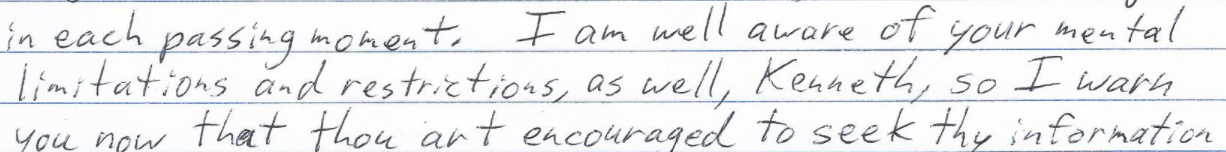 in each passing moment. I am well aware of your mental
limitations and restrictions, as well, Kenneth, so I warn
you now that thou art encouraged to seek thy information